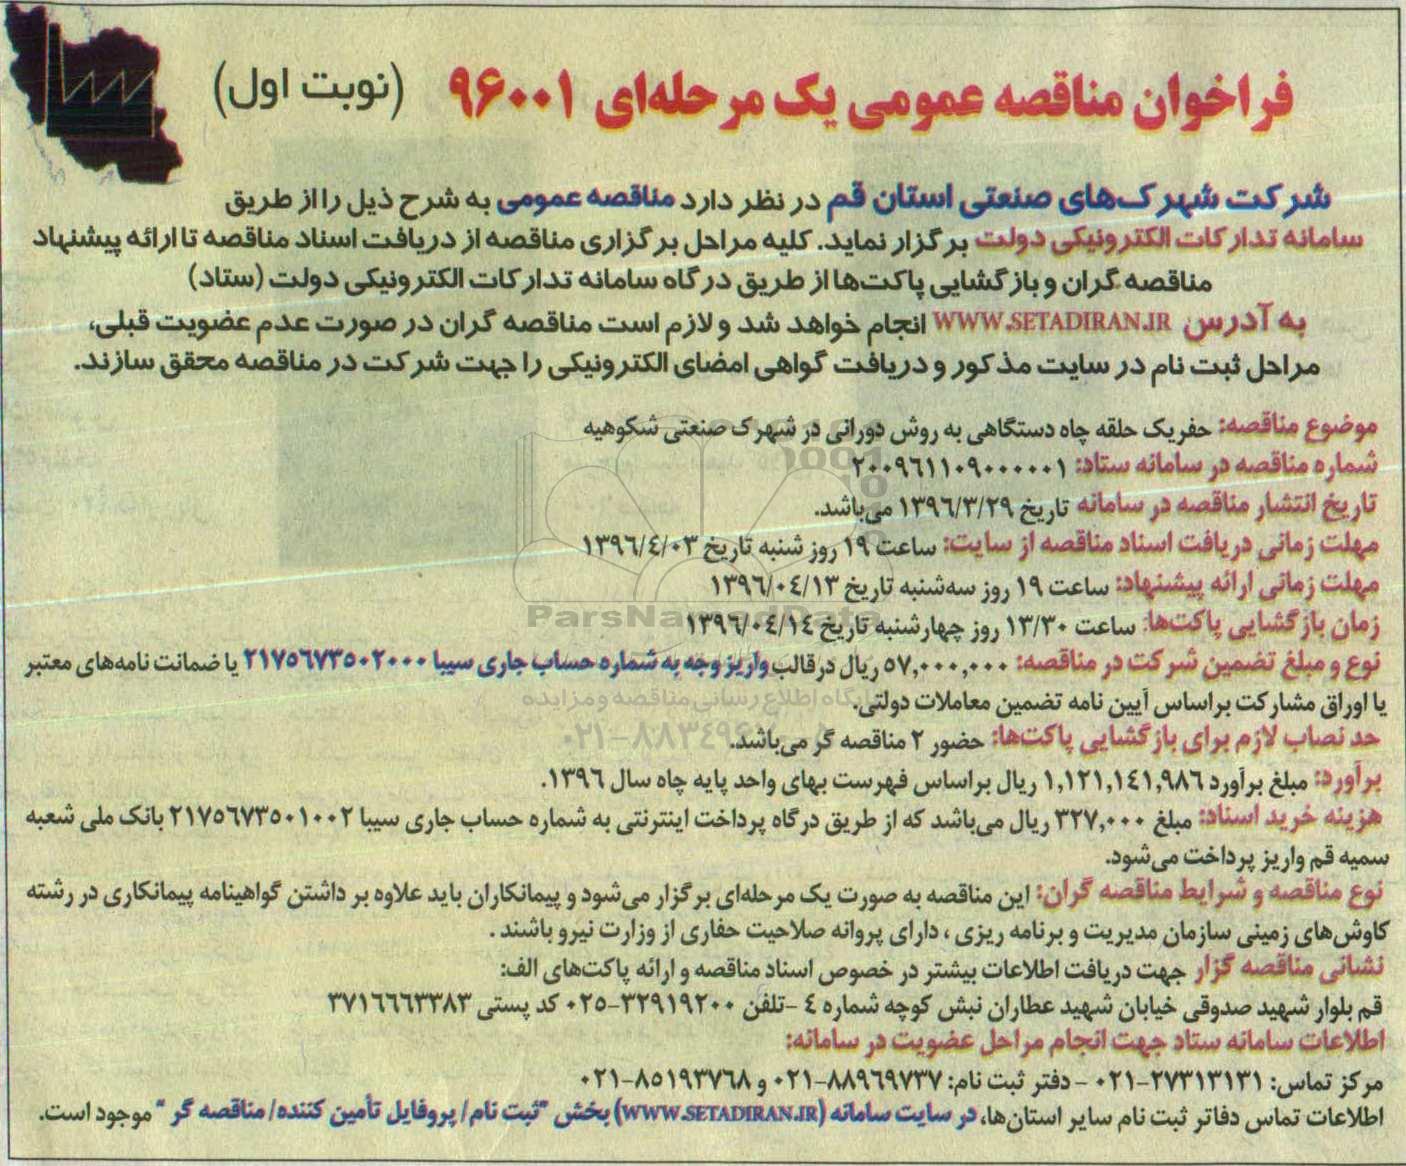 فراخوان مناقصه عمومی یک مرحله‌ای ۹۶۰۰۱ (نوبت اول)
شرکت شهرک‌های صنعتی استان قم در نظر دارد مناقصه عمومی به شرح ذیل را از طریق
سامانه تدارکات الکترونیکی دولت برگزار نماید. کلیه مراحل برگزاری مناقصه از دریافت اسناد مناقصه تا ارائه پیشنهاد
مناقصه گران و بازگشایی پاکت‌ها از طریق درگاه سامانه تدارکات الکترونیکی دولت (ستاد)
به آدرس WWW.SETADIRAN.IR انجام خواهد شد و لازم است مناقصه گران در صورت عدم عضویت قبلی،
مراحل ثبت نام در سایت مذکور و دریافت گواهی امضای الکترونیکی را جهت شرکت در مناقصه محقق سازند.
موضوع مناقصه: حفر یک حلقه چاه دستگاهی به روش دورانی در شهرک صنعتی شکوهیه
شماره مناقصه در سامانه ستاد: ۲۰۰۹۶۱۱۰۹۰۰۰۰۰۱
تاریخ انتشار مناقصه در سامانه تاریخ ۱۳۹۶/۳/۲۹ می‌باشد.
مهلت زمانی دریافت اسناد مناقصه از سایت: ساعت ۱۹ روز شنبه تاریخ ۱۳۹۶/۴/۰۳
مهلت زمانی ارائه پیشنهاد: ساعت ۱۹ روز سه‌شنبه تاریخ ۱۳۹۶/۰۴/۱۳
زمان بازگشایی پاکت‌ها: ساعت ۱۳/۳۰ روز چهارشنبه تاریخ ۱۳۹۶/۰۴/۱۴
ParsNamadData
نوع و مبلغ تضمین شرکت در مناقصه: ۵۷,۰۰۰,۰۰۰ ریال در قالب واریز وجه به شماره حساب جاری سیبا ۲۱۷۵۶۷۳۵۰۲۰۰۰ یا ضمانت نامه‌های معتبر
یا اوراق مشارکت براساس آیین نامه تضمین معاملات دولتی.
حد نصاب لازم برای بازگشایی پاکت‌ها: حضور ۲ مناقصه گر می‌باشد.
برآورد: مبلغ برآورد ۱,۱۲۱,۱۴۱,۹۸۶ ریال براساس فهرست بهای واحد پایه چاه سال ۱۳۹۶.
هزینه خرید اسناد: مبلغ ۳۲۷,۰۰۰ ریال می‌باشد که از طریق درگاه پرداخت اینترنتی به شماره حساب جاری سیبا ۲۱۷۵۶۷۳۵۰۱۰۰۲ بانک ملی شعبه
سمیه قم واریز پرداخت می‌شود.
نوع مناقصه و شرایط مناقصه گران: این مناقصه به صورت یک مرحله‌ای برگزار می‌شود و پیمانکاران باید علاوه بر داشتن گواهینامه پیمانکاری در رشته
کاوش‌های زمینی سازمان مدیریت و برنامه ریزی ، دارای پروانه صلاحیت حفاری از وزارت نیرو باشند .
نشانی مناقصه گزار جهت دریافت اطلاعات بیشتر در خصوص اسناد مناقصه و ارائه پاکت‌های الف:
قم بلوار شهید صدوقی خیابان شهید عطاران نبش کوچه شماره ۴ -تلفن ۳۲۹۱۹۲۰۰-۰۲۵ کد پستی ۳۷۱۶۶۶۳۳۸۳
اطلاعات سامانه ستاد جهت انجام مراحل عضویت در سامانه:
مرکز تماس: ۲۷۳۱۳۱۳۱-۰۲۱ - دفتر ثبت نام: ۸۸۹۶۹۷۳۷-۰۲۱ و ۸۵۱۹۳۷۶۸-۰۲۱
اطلاعات تماس دفاتر ثبت نام سایر استان‌ها، در سایت سامانه (WWW.SETADIRAN.IR) بخش "ثبت نام/ پروفایل تأمین کننده/ مناقصه گر " موجود است.